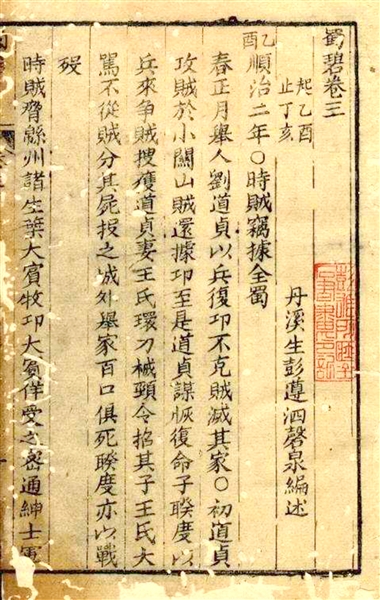 蜀碧卷三
起乙酉
止丁亥
丹溪生彭遵泗磬泉編述
乙酉順治二年○時賊竊據全蜀
春正月舉人劉道貞以兵復卭不克賊滅其家○初道貞
攻賊於小關山賊還據卭至是道貞謀恢復命子睽度以
兵來爭賊搜獲道貞妻王氏環刀械頸令招其子王氏大
罵不從賊分其屍投之城外舉家百口俱死睽度亦以戰
歿
時賊脅緜州諸生葉大賔牧卭大賔佯受之密通紳士軍